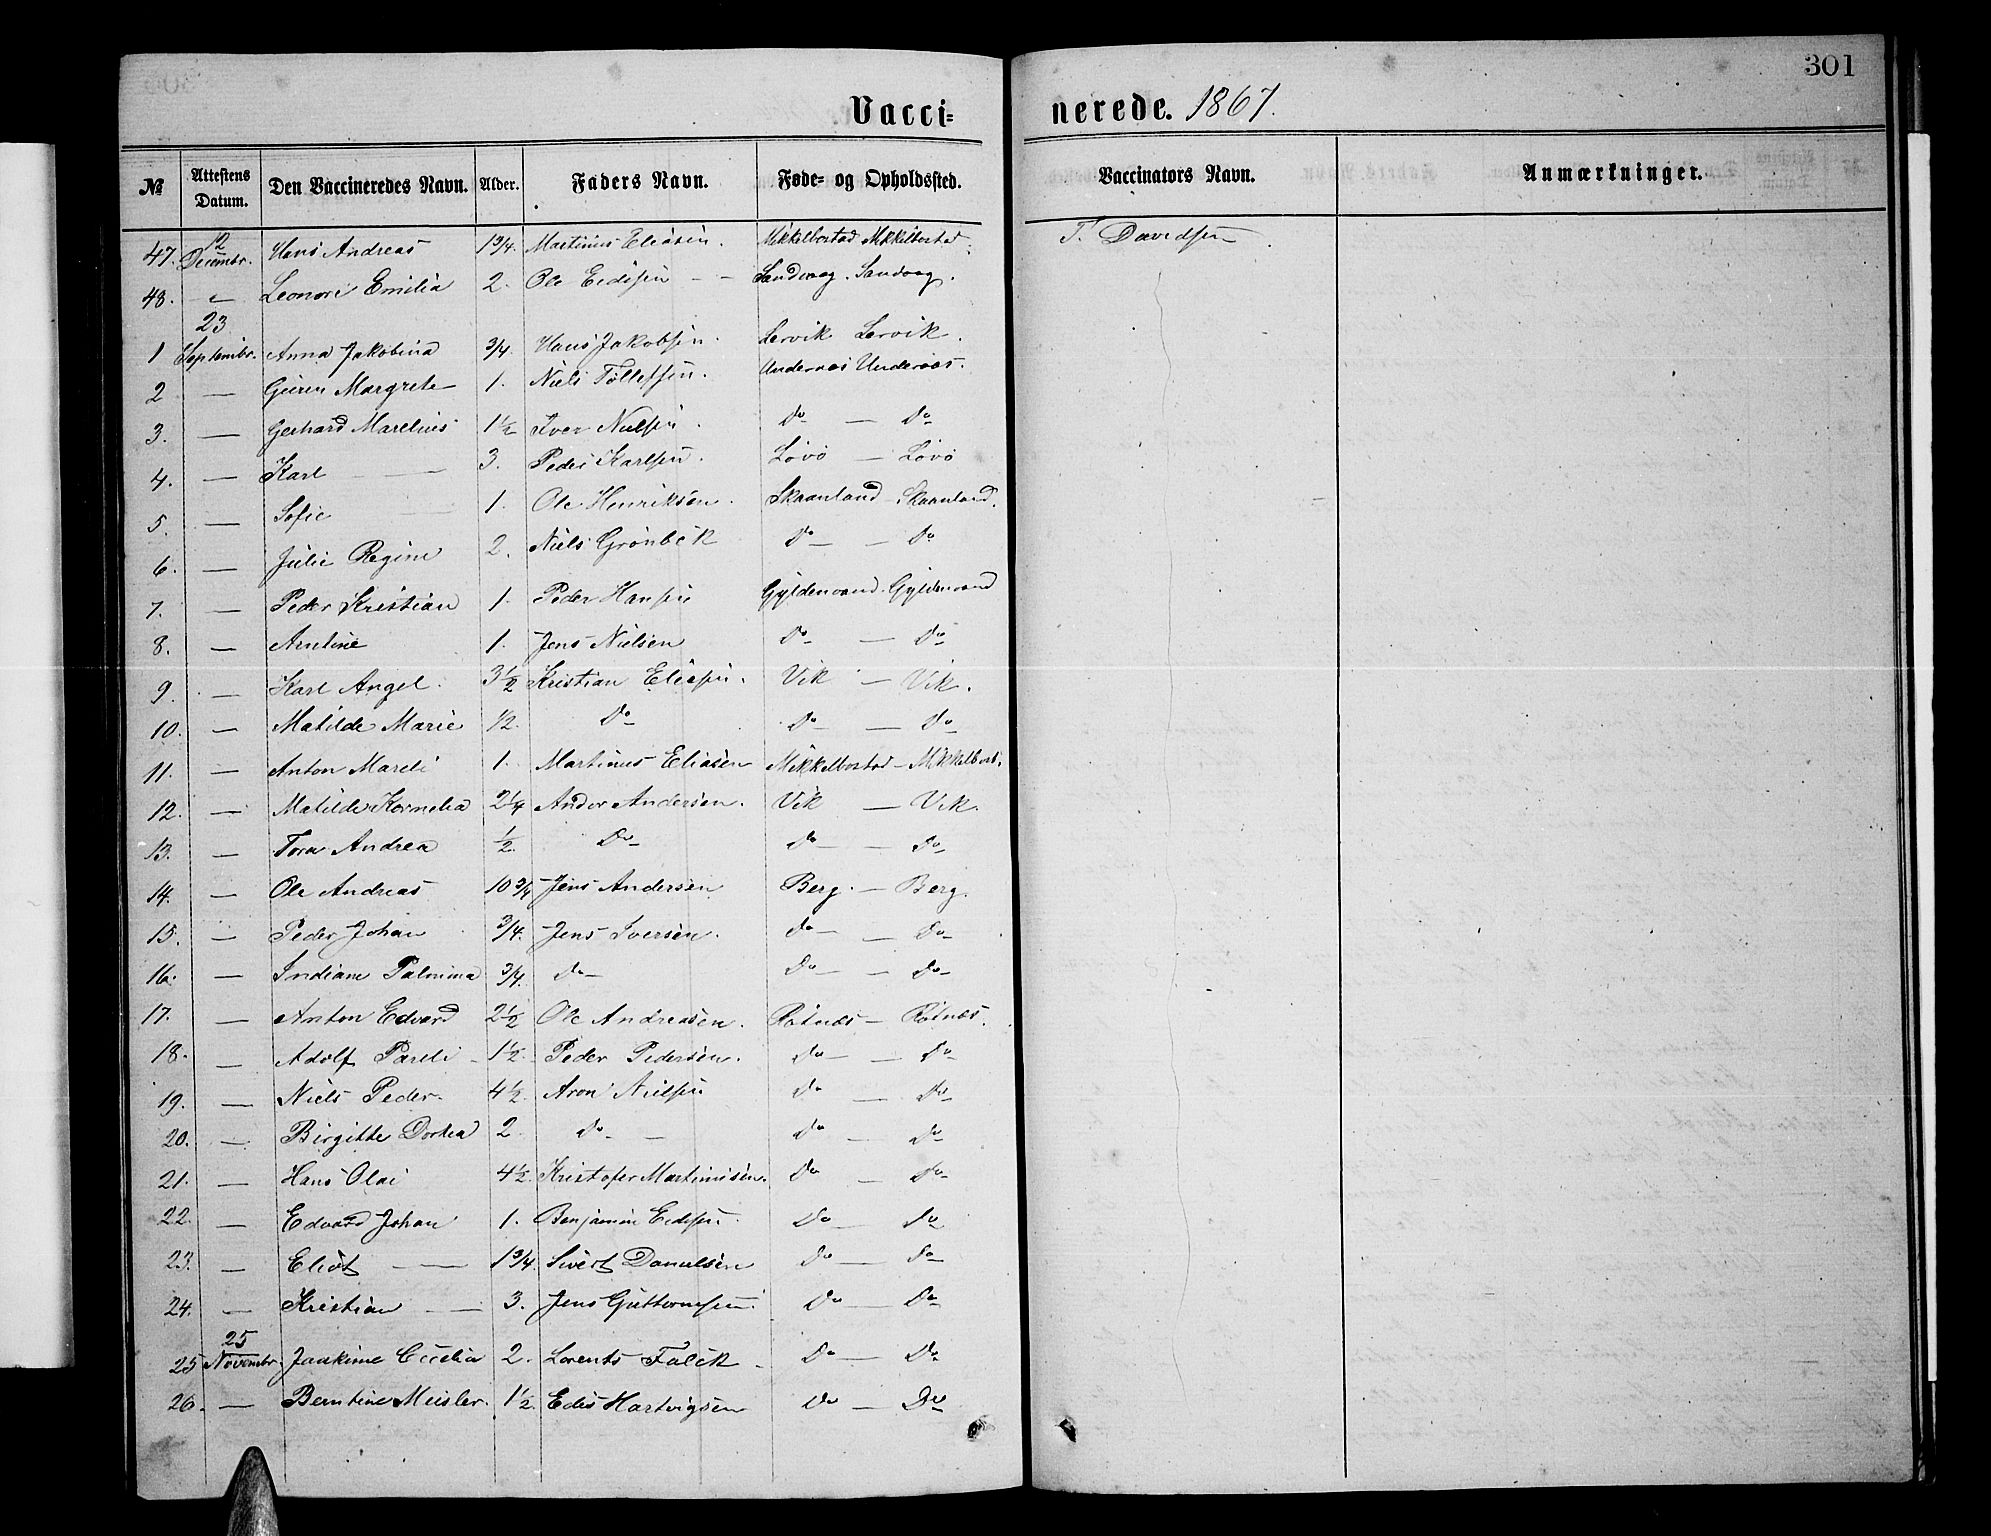 301
Vacci= nerede. 1867.
№ Attestens Datum. Den Vaccineredes Navn. Alder. Faders Navn. Føde- og Opholdssted. Vaccinators Navn. Anmærkninger.
47. 12 Decembr. Hans Andreas 1 3/4. Martinus Eliasen. Mikkelbostad Mikkelbostad. T. Davidsen
48. — Leonore Emilia 2. Ole Edisen — Sandvaag. Sandvaag.
1 23 Septembr. Anna Jakobina 3/4. Hans Jakobsen. Lervik Lervik.
2 — Guren Margrete 1. Niels Tollefsen. Undernæs Undernæs.
3. — Gerhard Marelius 1 1/2 Iver Nielsen. do — do
4. — Karl — 3. Peder Karlsen. Lovö — Lovö
5. — Sofie — 1. Ole Henriksen. Skaanland — Skaanland.
6. — Julie Regine 2. Niels Grönbek do — do
7. — Peder Kristian 1. Peder Hansen Gyldenvand. Gyldenvand
8. — Antine 1. Jens Nielsen do — do
9 — Karl Angel. 3 1/2 Kristian Eliasen. Vik — Vik.
10. — Matilde Marie 1/2. do do — do
11. — Anton Mareli 1. Martinus Eliasen Mikkelbostad — Mikkelbost.
12. — Matilde Kornelia 2 1/4 Andor Andersen. Vik — Vik.
13. — Tora Andrea 1/2. do do — do
14. — Ole Andreas 10 3/4 Jens Andersen Berg. — Berg.
15. — Peder Johan 3/4. Jens Iversen. do — do
16. — Indiane Palmina 3/4. do do — do
17. — Anton Edvard 2 1/2 Ole Andreasen. Rotnæs — Rotnæs.
18. — Adolf Pareli 1 1/2. Peder Pedersen. do — do
19. — Niels Peder. 4 1/2 Aron Nielsen do — do
20. — Birgitte Dortea 2. do — do — do
21. — Hans Olai 4 1/2. Kristofer Martinusen. do do
22. — Edvard Johan 1. Benjamin Edisen. do — do
23. — Eliot — 1 3/4. Sivert Danielsen do — do
24. — Kristian — 3. Jens Guttormsen. do — do
25 25 Novembr. Jaakime Cecelia 2. Lorents Falck do — do
26. — Berntine Meisler. 1 1/2. Edis Hartvigsen do — do